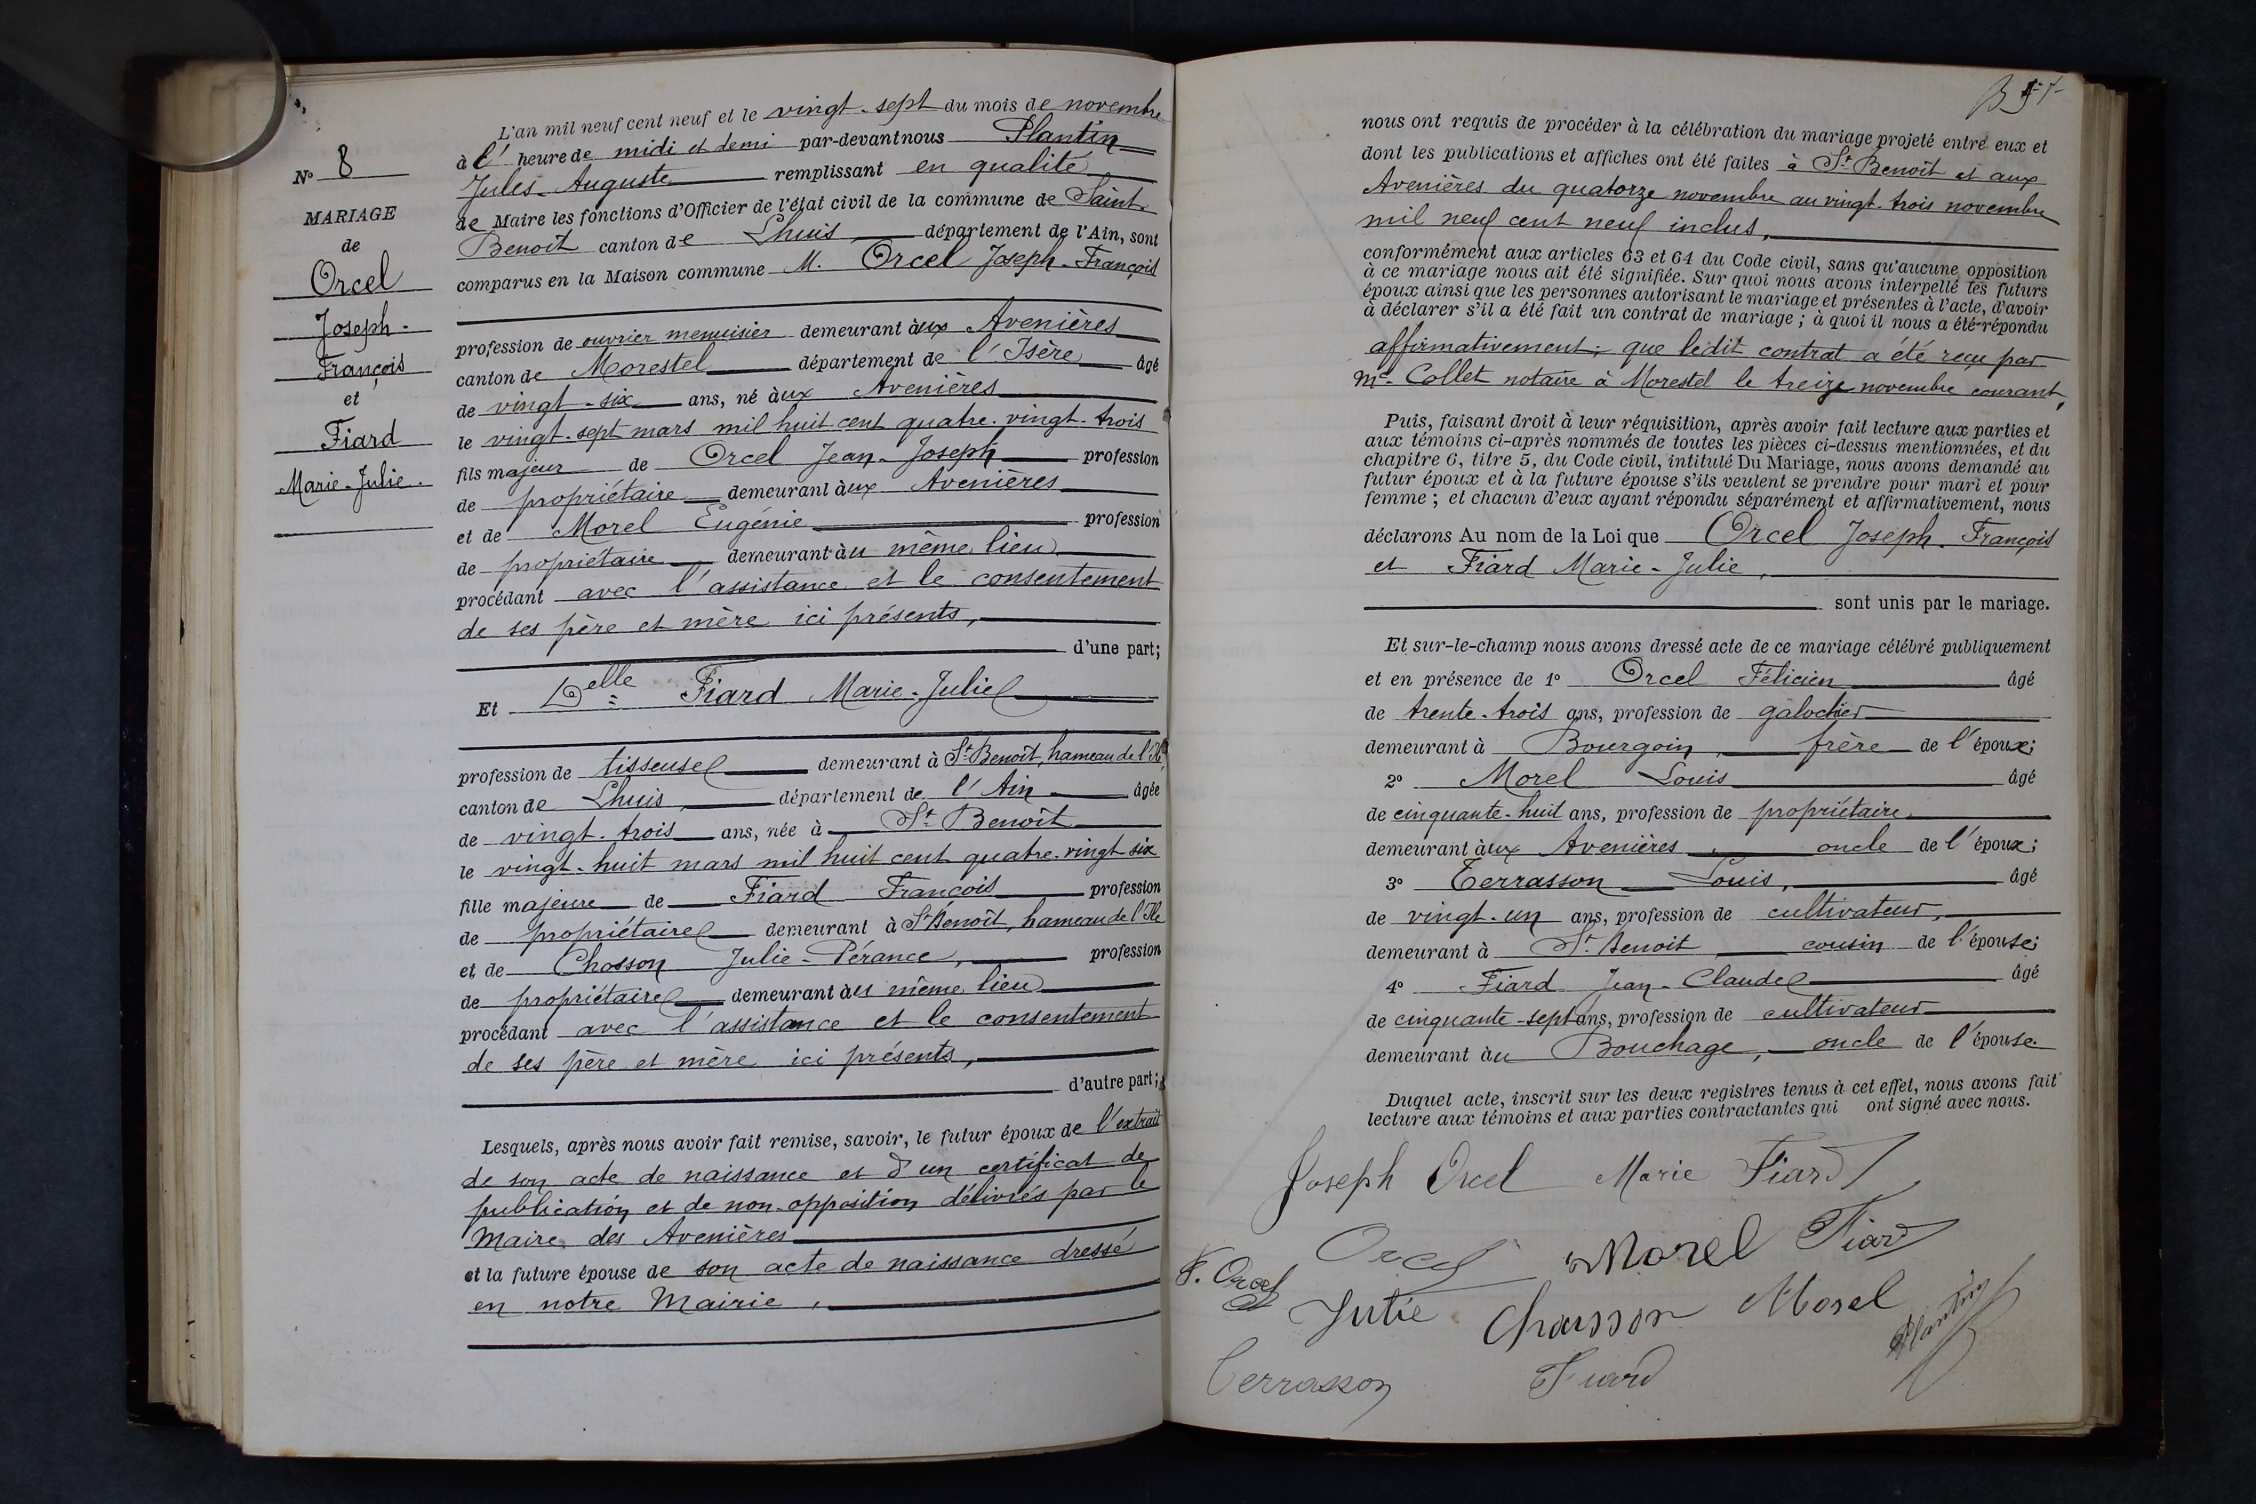 N° 8
MARIAGE
de
Orcel
Joseph-
François
et
Fiard
Marie-Julie.
L'an mil neuf cent neuf et le vingt-sept du mois de novembre
à l' heure de midi et demi par-devant nous Plantin
Jules-Auguste remplissant en qualité
de Maire les fonctions d'Officier de l'état civil de la commune de Saint-
Benoît canton de Lhuis département de l'Ain, sont
comparus en la Maison commune M. Orcel Joseph-François
profession de ouvrier menuisier demeurant àux Avenières
canton de Morestel département de l'Isère âgé
de vingt-six ans, né àux Avenières
le vingt-sept mars mil huit cent quatre-vingt-trois
fils majeur de Orcel Jean-Joseph profession
de propriétaire demeurant àux Avenières
et de Morel Eugénie profession
de propriétaire demeurant àu même lieu
procédant avec l'assistance et le consentement
de ses père et mère ici présents,
d'une part;
Et Delle Fiard Marie-Julie
profession de tisseuse demeurant à St Benoît, hameau de l'Ile
canton de Lhuis, département de l'Ain âgée
de vingt-trois ans, née à St Benoît
le vingt-huit mars mil huit cent quatre-vingt six
fille majeure de Fiard François profession
de propriétaire demeurant à St Benoît, hameau de l'Ile
et de Chosson Julie-Pérance, profession
de propriétaire demeurant àu même lieu
procédant avec l'assistance et le consentement
de ses père et mère ici présents,
d'autre part;
Lesquels, après nous avoir fait remise, savoir, le futur époux de l'extrait
de son acte de naissance et d'un certificat de
publication et de non-opposition délivrés par le
Maire des Avenières
et la future épouse de son acte de naissance dressé
en notre Mairie,
nous ont requis de procéder à la célébration du mariage projeté entre eux et
dont les publications et affiches ont été faites à St Benoît et aux
Avenières du quatorze novembre au vingt-trois novembre
mil neuf cent neuf inclus,
conformément aux articles 63 et 64 du Code civil, sans qu'aucune opposition
à ce mariage nous ait été signifiée. Sur quoi nous avons interpellé les futurs
époux ainsi que les personnes autorisant le mariage et présentes à l'acte, d'avoir
à déclarer s'il a été fait un contrat de mariage; à quoi il nous a été répondu
affirmativement; que ledit contrat a été reçu par
Me Collet notaire à Morestel le treize novembre courant,
Puis, faisant droit à leur réquisition, après avoir fait lecture aux parties et
aux témoins ci-après nommés de toutes les pièces ci-dessus mentionnées, et du
chapitre 6, titre 5, du Code civil, intitulé Du Mariage, nous avons demandé au
futur époux et à la future épouse s'ils veulent se prendre pour mari et pour
femme; et chacun d'eux ayant répondu séparément et affirmativement, nous
déclarons Au nom de la Loi que Orcel Joseph-François
et Fiard Marie-Julie,
sont unis par le mariage.
Et sur-le-champ nous avons dressé acte de ce mariage célébré publiquement
et en présence de 1° Orcel Félicien âgé
de trente-trois ans, profession de galochier
demeurant à Bourgoin, frère de l'époux;
2° Morel Louis âgé
de cinquante-huit ans, profession de propriétaire,
demeurant àux Avenières, oncle de l'époux;
3° Terrasson Louis, âgé
de vingt-un ans, profession de cultivateur,
demeurant à St Benoit cousin de l'épouse;
4° Fiard Jean-Claude âgé
de cinquante-sept ans, profession de cultivateur
demeurant àu Bouchage, oncle de l'épouse.
Duquel acte, inscrit sur les deux registres tenus à cet effet, nous avons fait
lecture aux témoins et aux parties contractantes qui ont signé avec nous.
Joseph Orcel Marie Fiard
Orcel Morel Fiard
F. Orcel
Julie Chausson Morel Plantin
Terrasson Fiard